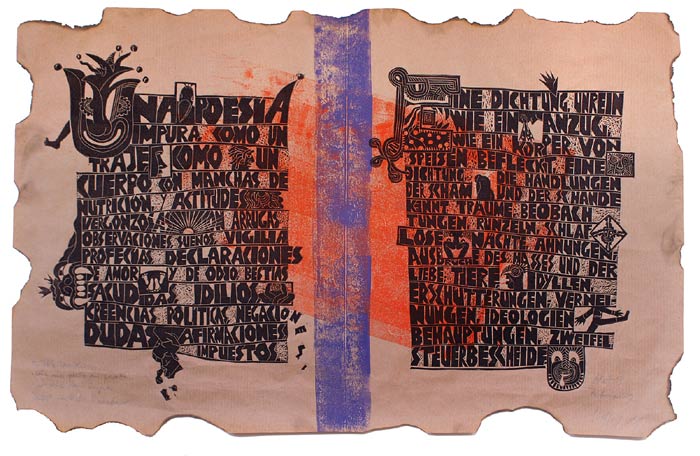 UNA POESIA
IMPURA COMO UN
TRAJE COMO UN
CUERPO CON MANCHAS DE
NUTRICION Y ACTITUDES
VERGONZOSAS ARRUGAS
OBSERVACIONES SUEÑOS VIGILIA
PROFECIAS DECLARACIONES
DE AMOR Y DE ODIO BESTIAS
SACUDIDAS IDILIOS
CREENCIAS POLITICAS NEGACIONES
DUDAS AFIRMACIONES
IMPUESTOS
EINE DICHTUNG UNREIN
WIE EIN ANZUG
WIE EIN KÖRPER VON
SPEISEN BEFLECKT EINE
DICHTUNG DIE HANDLUNGEN
DER SCHAM UND DER SCHANDE
KENNT TRÄUME BEOBACH
TUNGEN RUNZELN SCHLAF
LOSE NÄCHTE AHNUNGEN
AUSBRÜCHE DES HASSES UND DER
LIEBE TIERE IDYLLEN
ERSCHÜTTERUNGEN VERNEI
NUNGEN IDEOLOGIEN
BEHAUPTUNGEN ZWEIFEL
STEUERBESCHEIDE